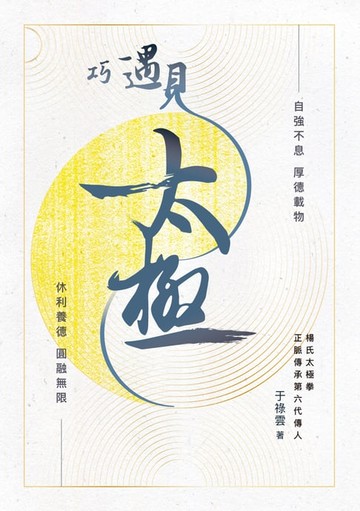 巧遇見
太極
自強不息 厚德載物
休利養德 圓融無限
楊氏太極拳
正脈傳承第六代傳人
于祿雲 著